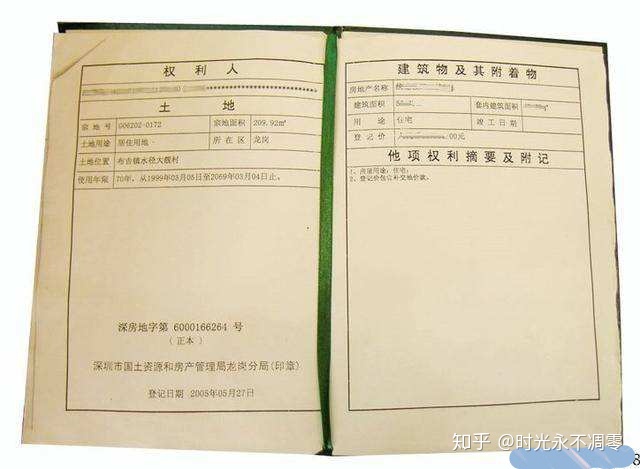 权利人
土地
宗地号 G06202-0172 宗地面积 209.92m²
土地用途 居住用地 所在区 龙岗
土地位置 布吉镇水径大靓村
使用年限 70年，从1999年03月05日至2069年03月04日止。
深房地字第 6000166264 号
(正本)
深圳市国土资源和房产管理局龙岗分局(印章)
登记日期 2005年05月27日
建筑物及其附着物
房地产名称
建筑面积 套内建筑面积
用途 住宅 竣工日期
登记价 00元
他项权利摘要及附记
1、房屋用途：住宅;
2、登记价包含补交地价款。
知乎 @时光永不凋零
8